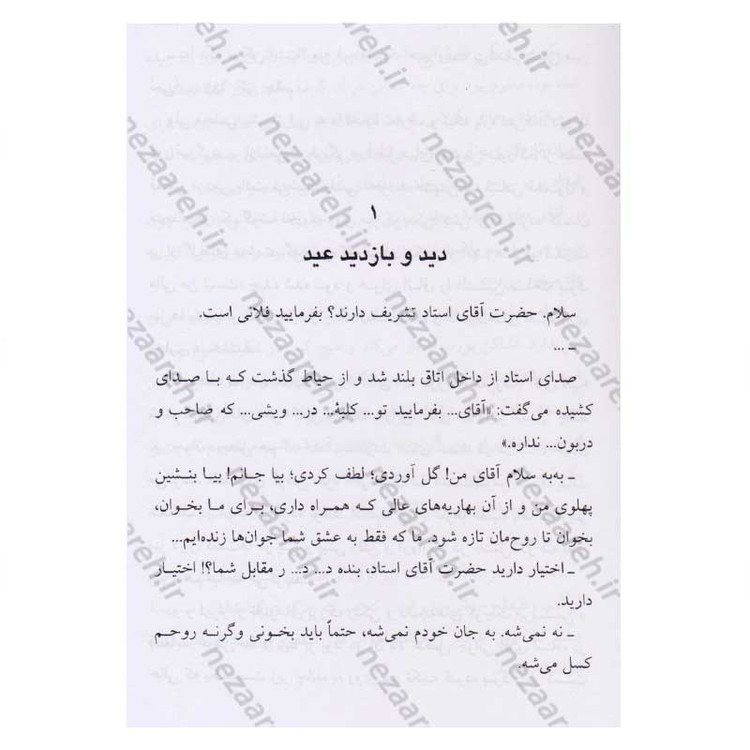 ۱
دید و بازدید عید
سلام. حضرت آقای استاد تشریف دارند؟ بفرمایید فلانی است.
ـ ...
صدای استاد از داخل اتاق بلند شد و از حیاط گذشت که با صدای
کشیده می‌گفت: «آقای... بفرمایید تو... کلبهٔ... در... ویشی... که صاحب و
دربون... نداره.»
ـ به‌به سلام آقای من! گل آوردی؛ لطف کردی؛ بیا جانم! بیا بنشین
پهلوی من و از آن بهاریه‌های عالی که همراه داری، برای ما بخوان،
بخوان تا روح‌مان تازه شود. ما که فقط به عشق شما جوان‌ها زنده‌ایم...
ـ اختیار دارید حضرت آقای استاد، بنده د... د... ر مقابل شما؟! اختیار
دارید.
ـ نه نمی‌شه. به جان خودم نمی‌شه، حتماً باید بخونی وگرنه روحم
کسل می‌شه.
nezaareh.ir